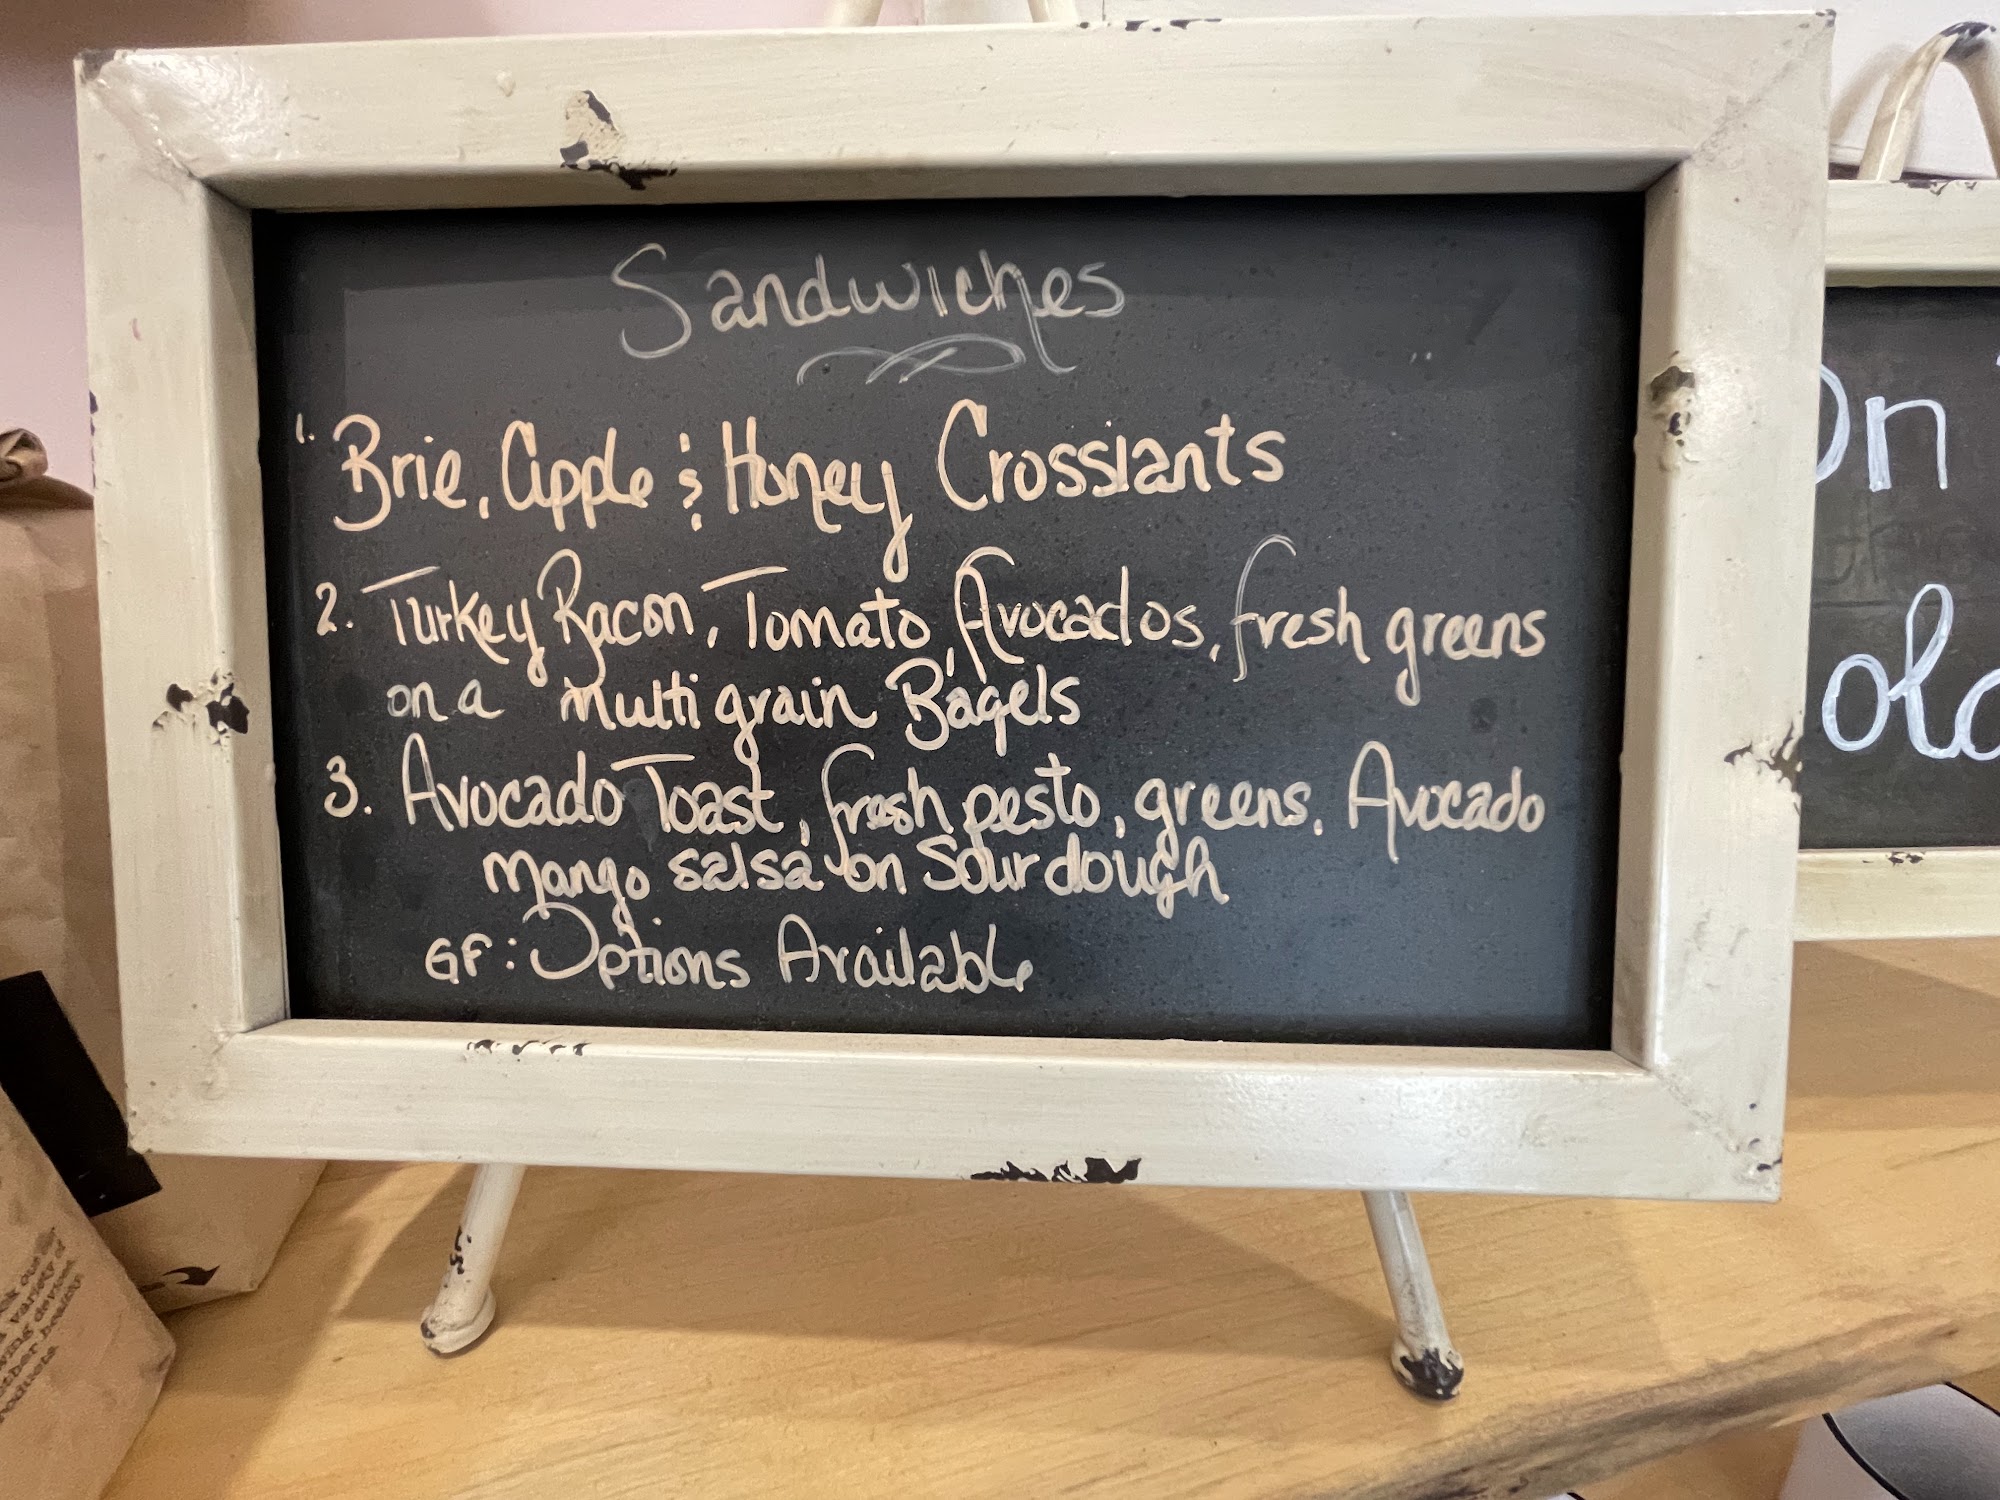 Sandwiches
1. Brie, Apple & Honey Crossiants
2. Turkey Bacon, Tomato, Avocados, fresh greens
on a multi grain Bagels
3. Avocado Toast, fresh pesto, greens, Avocado
mango salsa on Sourdough
GF: Options Available
On
old